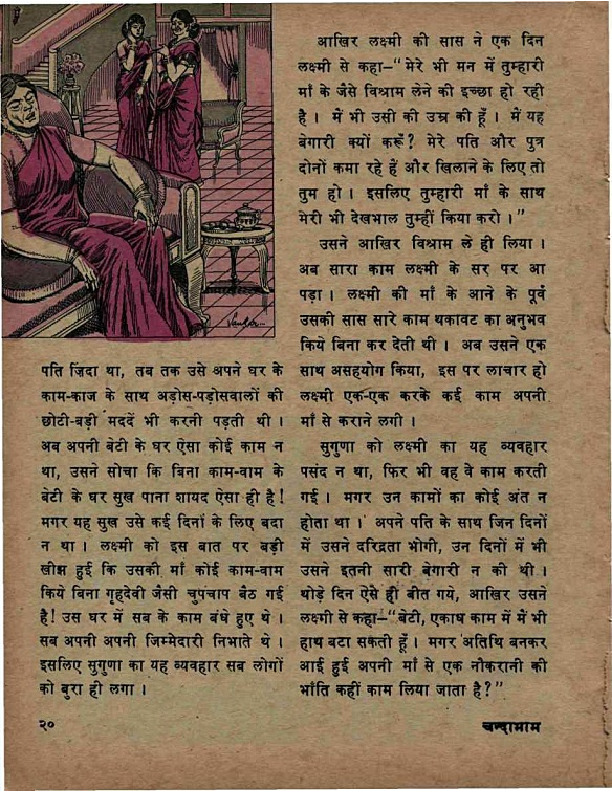 पति ज़िंदा था, तब तक उसे अपने घर के
काम-काज के साथ अड़ोस-पड़ोसवालों की
छोटी-बड़ी मददें भी करनी पड़ती थी ।
अब अपनी बेटी के घर ऐसा कोई काम न
था, उसने सोचा कि बिना काम-वाम के
बेटी के घर सुख पाना शायद ऐसा ही है !
मगर यह सुख उसे कई दिनों के लिए बदा
न था । लक्ष्मी को इस बात पर बड़ी
खीझ हुई कि उसकी माँ कोई काम-वाम
किये बिना गृहदेवी जैसी चुपचाप बैठ गई
है! उस घर में सब के काम बंधे हुए थे ।
सब अपनी अपनी जिम्मेदारी निभाते थे ।
इसलिए सुगुणा का यह व्यवहार सब लोगों
को बुरा ही लगा ।
आखिर लक्ष्मी की सास ने एक दिन
लक्ष्मी से कहा–“मेरे भी मन में तुम्हारी
माँ के जैसे विश्राम लेने की इच्छा हो रही
है । मैं भी उसी की उम्र की हूँ । मैं यह
बेगारी क्यों करूँ? मेरे पति और पुत्र
दोनों कमा रहे हैं और खिलाने के लिए तो
तुम हो । इसलिए तुम्हारी माँ के साथ
मेरी भी देखभाल तुम्हीं किया करो ।”
उसने आखिर विश्राम ले ही लिया ।
अब सारा काम लक्ष्मी के सर पर आ
पड़ा । लक्ष्मी की माँ के आने के पूर्व
उसकी सास सारे काम थकावट का अनुभव
किये बिना कर देती थी । अब उसने एक
साथ असहयोग किया, इस पर लाचार हो
लक्ष्मी एक-एक करके कई काम अपनी
माँ से कराने लगी ।
सुगुणा को लक्ष्मी का यह व्यवहार
पसंद न था, फिर भी वह वे काम करती
गई । मगर उन कामों का कोई अंत न
होता था । अपने पति के साथ जिन दिनों
में उसने दरिद्रता भोगी, उन दिनों में भी
उसने इतनी सारी बेगारी न की थी ।
थोड़े दिन ऐसे ही बीत गये, आखिर उसने
लक्ष्मी से कहा–“बेटी, एकाध काम में मैं भी
हाथ बटा सकती हूँ । मगर अतिथि बनकर
आई हुई अपनी माँ से एक नौकरानी की
भाँति कहीं काम लिया जाता है?”
२०
चन्दामामा